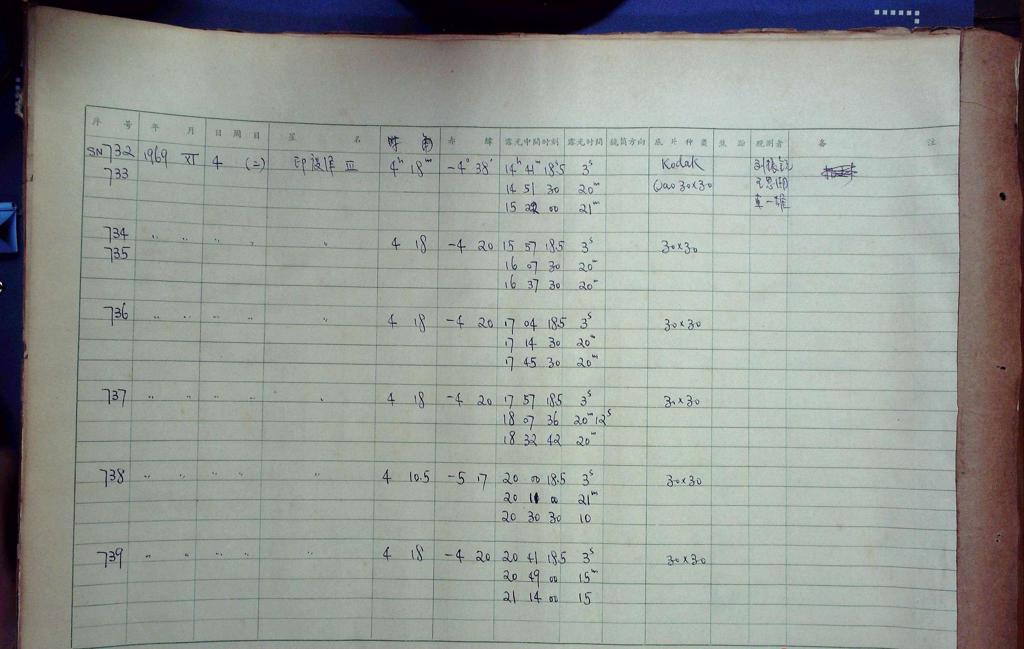 序 号 年 月 日 周 日 星 名 时 角 赤 纬 露光中间时刻 露光时间 镜筒方向 底 片 种 类 焦 距 观测者 备 注
SN732 1969 XI 4 (二) III 4ʰ 18ᵐ -4° 38′ 14ʰ 41ᵐ 18.5 3ˢ Kodak
733 14 51 30 20ᵐ Oa0 30×30
15 22 00 21ᵐ
734 〃 〃 〃 〃 〃 4 18 -4 20 15 57 18.5 3ˢ 30×30
735 16 07 30 20ᵐ
16 37 30 20ᵐ
736 〃 〃 〃 〃 〃 4 18 -4 20 17 04 18.5 3ˢ 30×30
17 14 30 20ᵐ
17 45 30 20ᵐ
737 〃 〃 〃 〃 〃 4 18 -4 20 17 57 18.5 3ˢ 30×30
18 07 36 20ᵐ12ˢ
18 32 42 20ᵐ
738 〃 〃 〃 〃 〃 4 10.5 -5 17 20 00 18.5 3ˢ 30×30
20 11 00 21ᵐ
20 30 30 10
739 〃 〃 〃 〃 〃 4 18 -4 20 20 41 18.5 3ˢ 30×30
20 49 00 15ᵐ
21 14 00 15